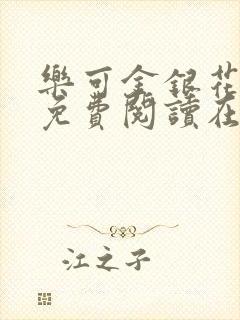 樂可金銀花
免費閱讀在
江之子